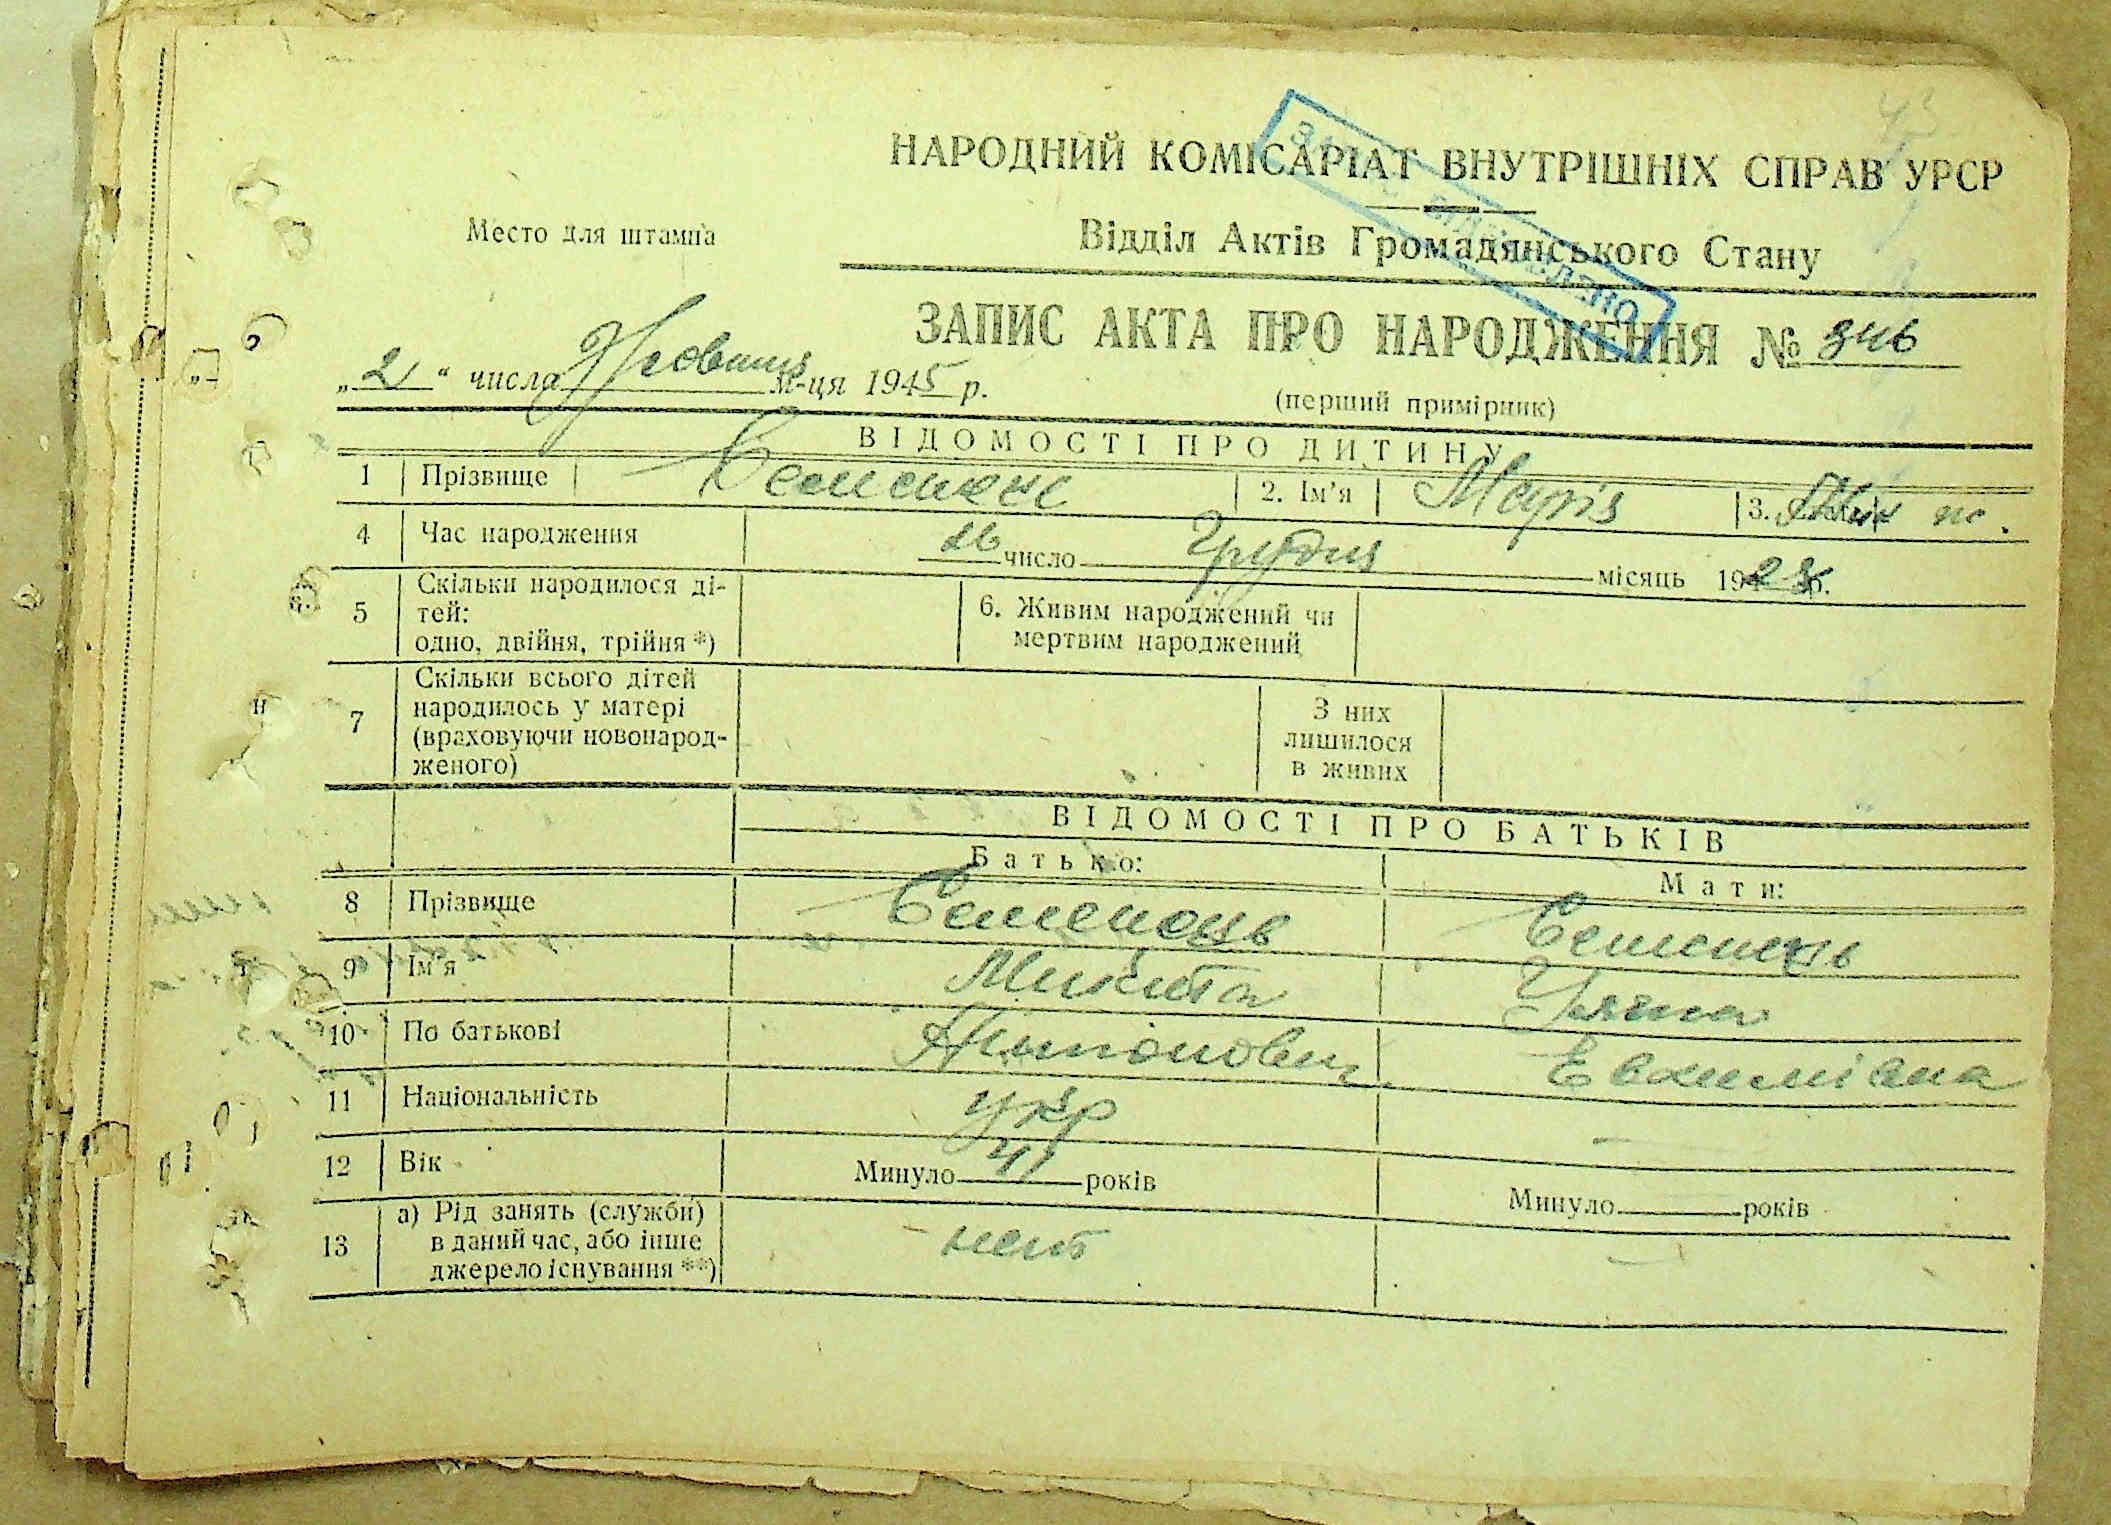 НАРОДНИЙ КОМІСАРІАТ ВНУТРІШНІХ СПРАВ УРСР
Место для штампа
Відділ Актів Громадянського Стану
ЗАПИС АКТА ПРО НАРОДЖЕННЯ № 346
„2“ числа Жовтня м-ця 1945 р.
(перший примірник)
ВІДОМОСТІ ПРО ДИТИНУ
1 Прізвище 2. Ім'я Марія 3.
4 Час народження 26 число Грудня місяць 19
5 Скільки народилося ді-
тей:
одно, двійня, трійня *)
6. Живим народжений чи
мертвим народжений
7 Скільки всього дітей
народилось у матері
(враховуючи новонарод-
женого)
З них
лишилося
в живих
ВІДОМОСТІ ПРО БАТЬКІВ
Батько: Мати:
8 Прізвище Семенець Семенець
9 Ім'я Микита Уляна
10 По батькові
11 Національність укр —
12 Вік Минуло 41 років Минуло років
13 а) Рід занять (служби)
в даний час, або інше
джерело існування **)